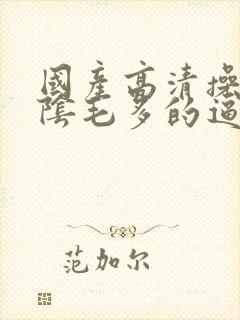 國產高清操
陰毛多的逼
范加尔